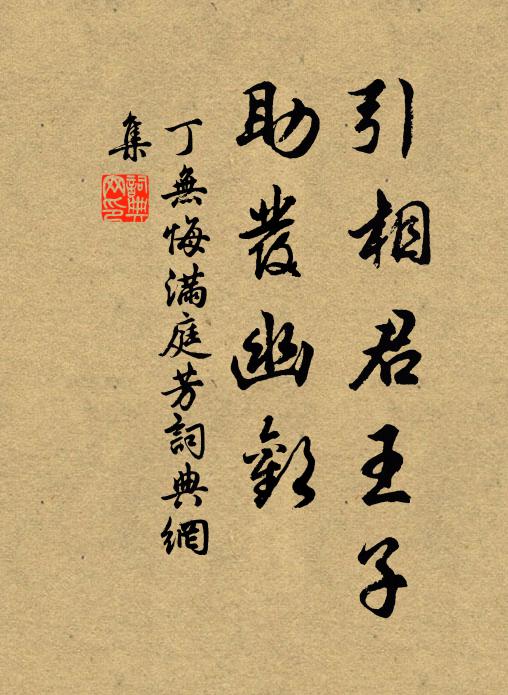 引相君王子
助發幽歡
丁無悔滿庭芳詞典網
集
詞典
网印